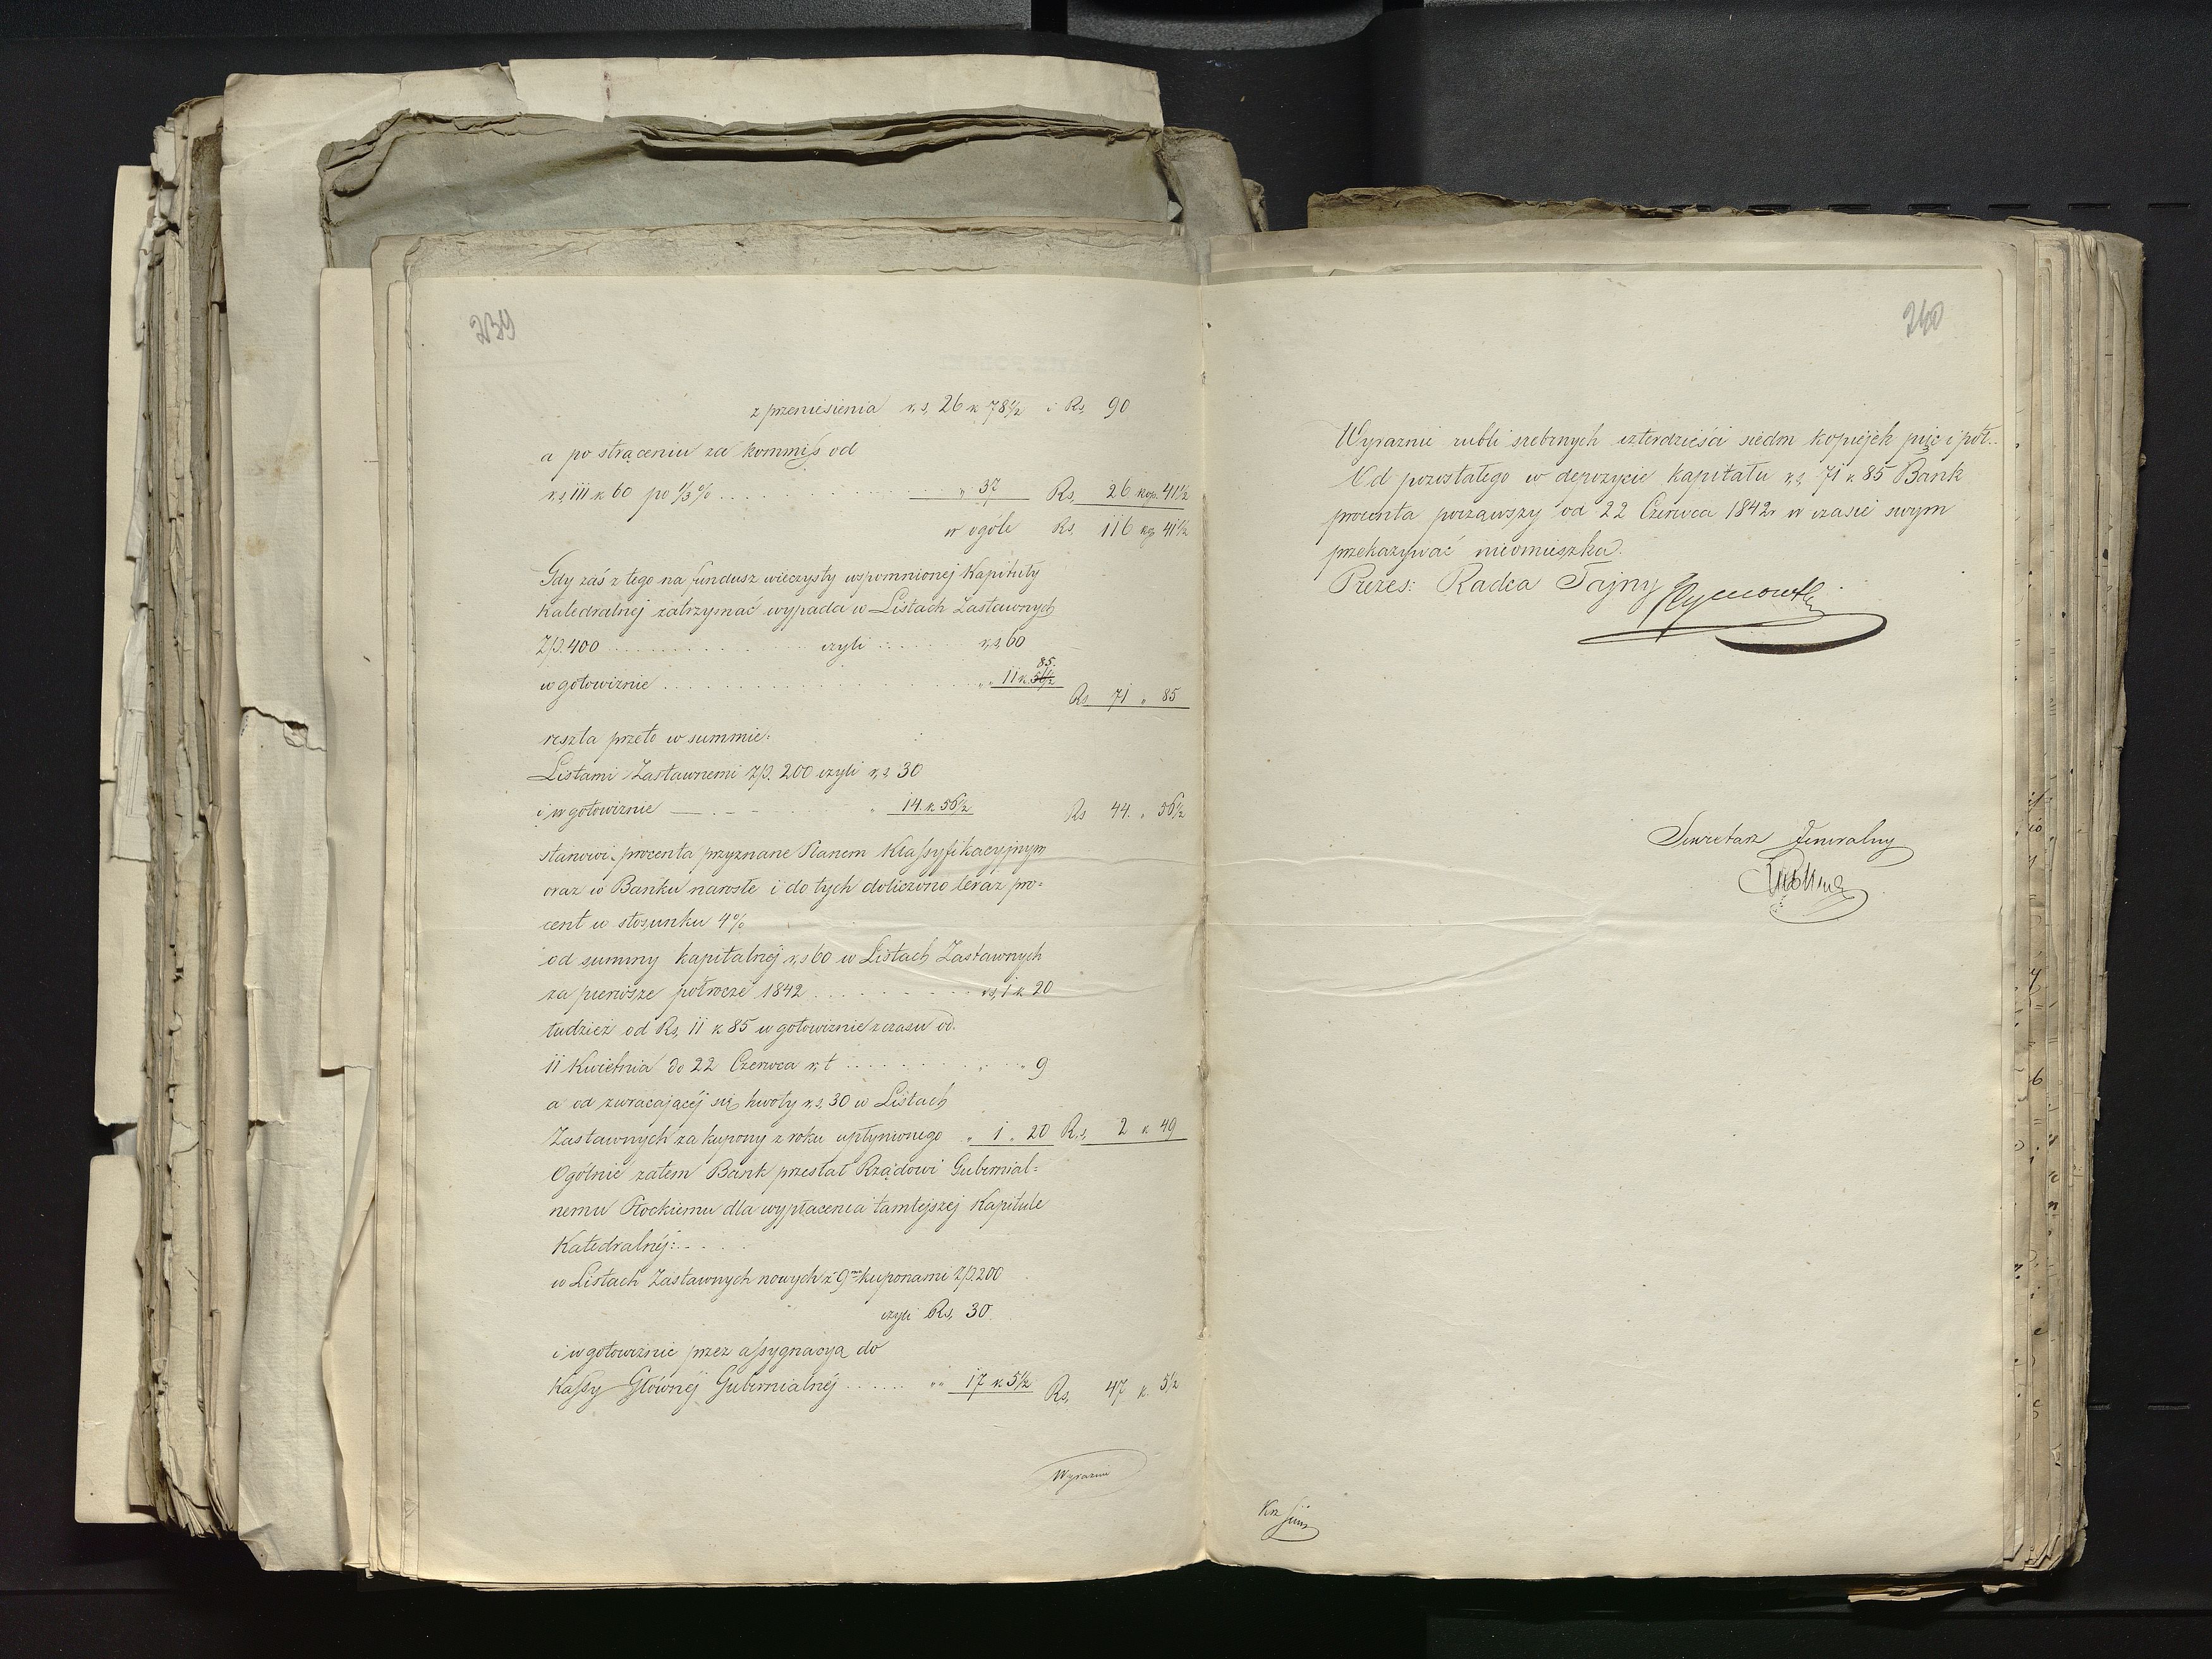 239
z przeniesienia r,s, 26 k 78½ i Rs, 90
a po strąceniu za kommis od
r,s, 111 k 60 po ⅓% . . . . " 37 Rs, 26 kop. 41½
w ogóle Rs, 116 kop 41½
Gdy zaś z tego na fundusz wieczysty wspomnionej Kapituły
Katedralnej zatrzymać wypada w Listach Zastawnych
Złp. 400 . . . . czyli . . . . r,s, 60
85.
w gotowiznie . . . . " 11 k.
Rs 71 " 85
reszta przeto w summie:
Listami Zastawnemi złp. 200 czyli r,s 30
i w gotowiznie — . - - " 14. k 56½ Rs 44. " 56½
stanowi procenta przyznane Planem Klassyfikacyjnym
oraz w Banku narosłe i do tych doliczono teraz pro=
cent w stosunku 4%
od summy kapitalnéj r,s 60 w Listach Zastawnych
za pierwsze półrocze 1842 . . . . r,s, 1 k 20
tudzież od Rs, 11 k 85 w gotowiznie z czasu od
11 Kwietnia do 22 Czerwca r, t . . . . " " 9
a od zwracającéj się kwoty r,s, 30 w Listach
Zastawnych za kupony z roku upłynionego " 1 " 20 R,s, 2 k 49
Ogólnie zatem Bank przesłał Rządowi Gubernial=
nemu Płockiemu dla wypłacenia tamtejszej Kapitule
Katedralnéj: - . . .
w Listach Zastawnych nowych z 9ma kuponami złp. 200
czyli Rs, 30.
i w gotowiznie przez assygnacyą do
Kassy Głównéj Gubernialnéj . . . . . . " " 17 k 5½ Rs, 47 k. 5½
Wyraznie
240
Wyraznie rubli srebrnych czterdzieści siedm kopiejek pięć i pół..
Od pozostałego w depozycie kapitału r,s, 71 k 85 Bank
procenta począwszy od 22 Czerwca 1842 r. w czasie swym
przekazywać nieomieszka.
Prezes: Radca Tajny
Sekretarz Jeneralny